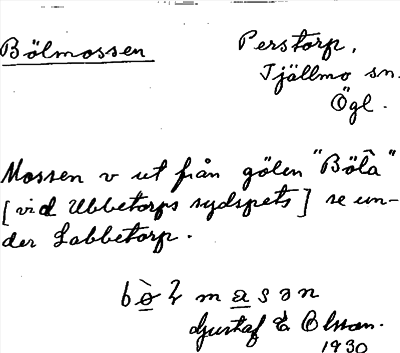 Bölmossen
Perstorp,
Tjällmo sn.
Ögl.
Mossen v ut från gölen "Böla"
[vid Ubbetorps sydspets] se un-
der Labbetorp.
Gustaf E Olsson.
1930